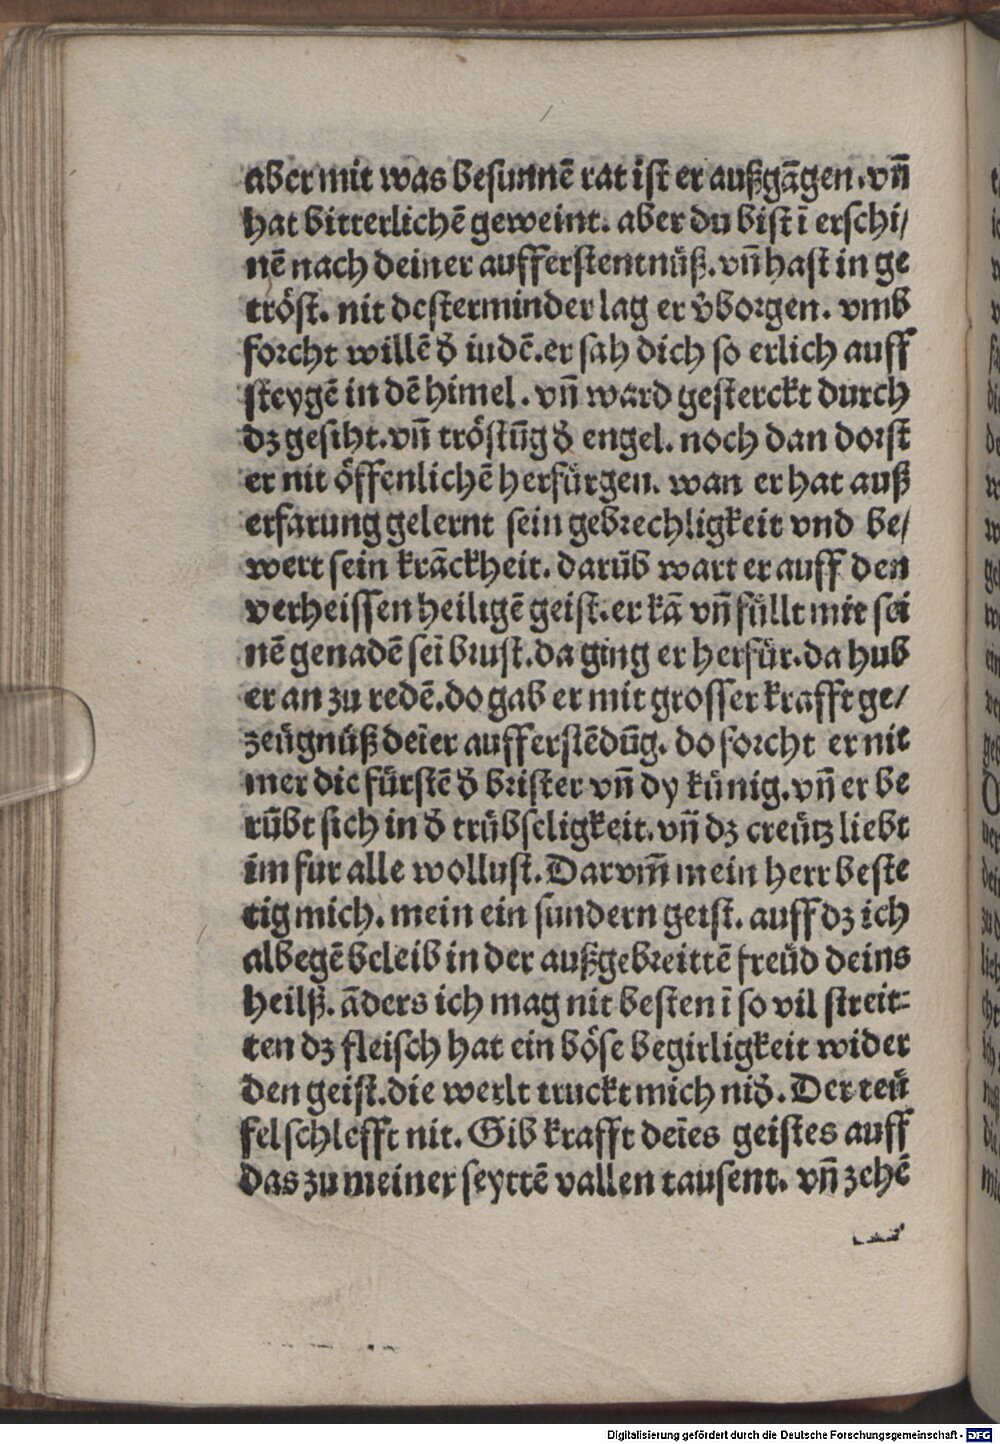 aber mit was besunnē rat ist er außgāgen. vn̄
hat bitterlichē geweint. aber du bist ī erschi/
nē nach deiner aufferstentnüß. vn̄ hast in ge
tröst. nit desterminder lag er v̄borgen. vmb
forcht willē d̄ iudē. er sah dich so erlich auff
steygē in dē himel. vn̄ ward gesterckt durch
dz gesiht. vn̄ tröstūg d̄ engel. noch dan dorst
er nit öffenlichē herfürgen. wan er hat auß
erfarung gelernt sein gebrechligkeit vnd be/
wert sein krāckheit. darūb wart er auff den
verheissen heiligē geist. er kā vn̄ füllt mit sei
nē genadē sei brust. da ging er herfür. da hub
er an zu redē. do gab er mit grosser krafft ge/
zeügnüß deīer aufferstēdūg. do forcht er nit
mer die fürstē d̄ brister vn̄ dy künig. vn̄ er be
rūbt sich in d̄ trübseligkeit. vn̄ dz creütz liebt
im fur alle wollust. Darvm̄ mein herr beste
tig mich. mein ein sundern geist. auff dz ich
albegē beleib in der außgebreittē freüd deins
heilß. āders ich mag nit besten ī so vil streit-
ten dz fleisch hat ein böse begirligkeit wider
den geist. die werlt truckt mich nid̄. Der teü
fel schlefft nit. Gib krafft deīes geistes auff
das zu meiner seyttē vallen tausent. vn̄ zehē
Digitalisierung gefördert durch die Deutsche Forschungsgemeinschaft - DFG